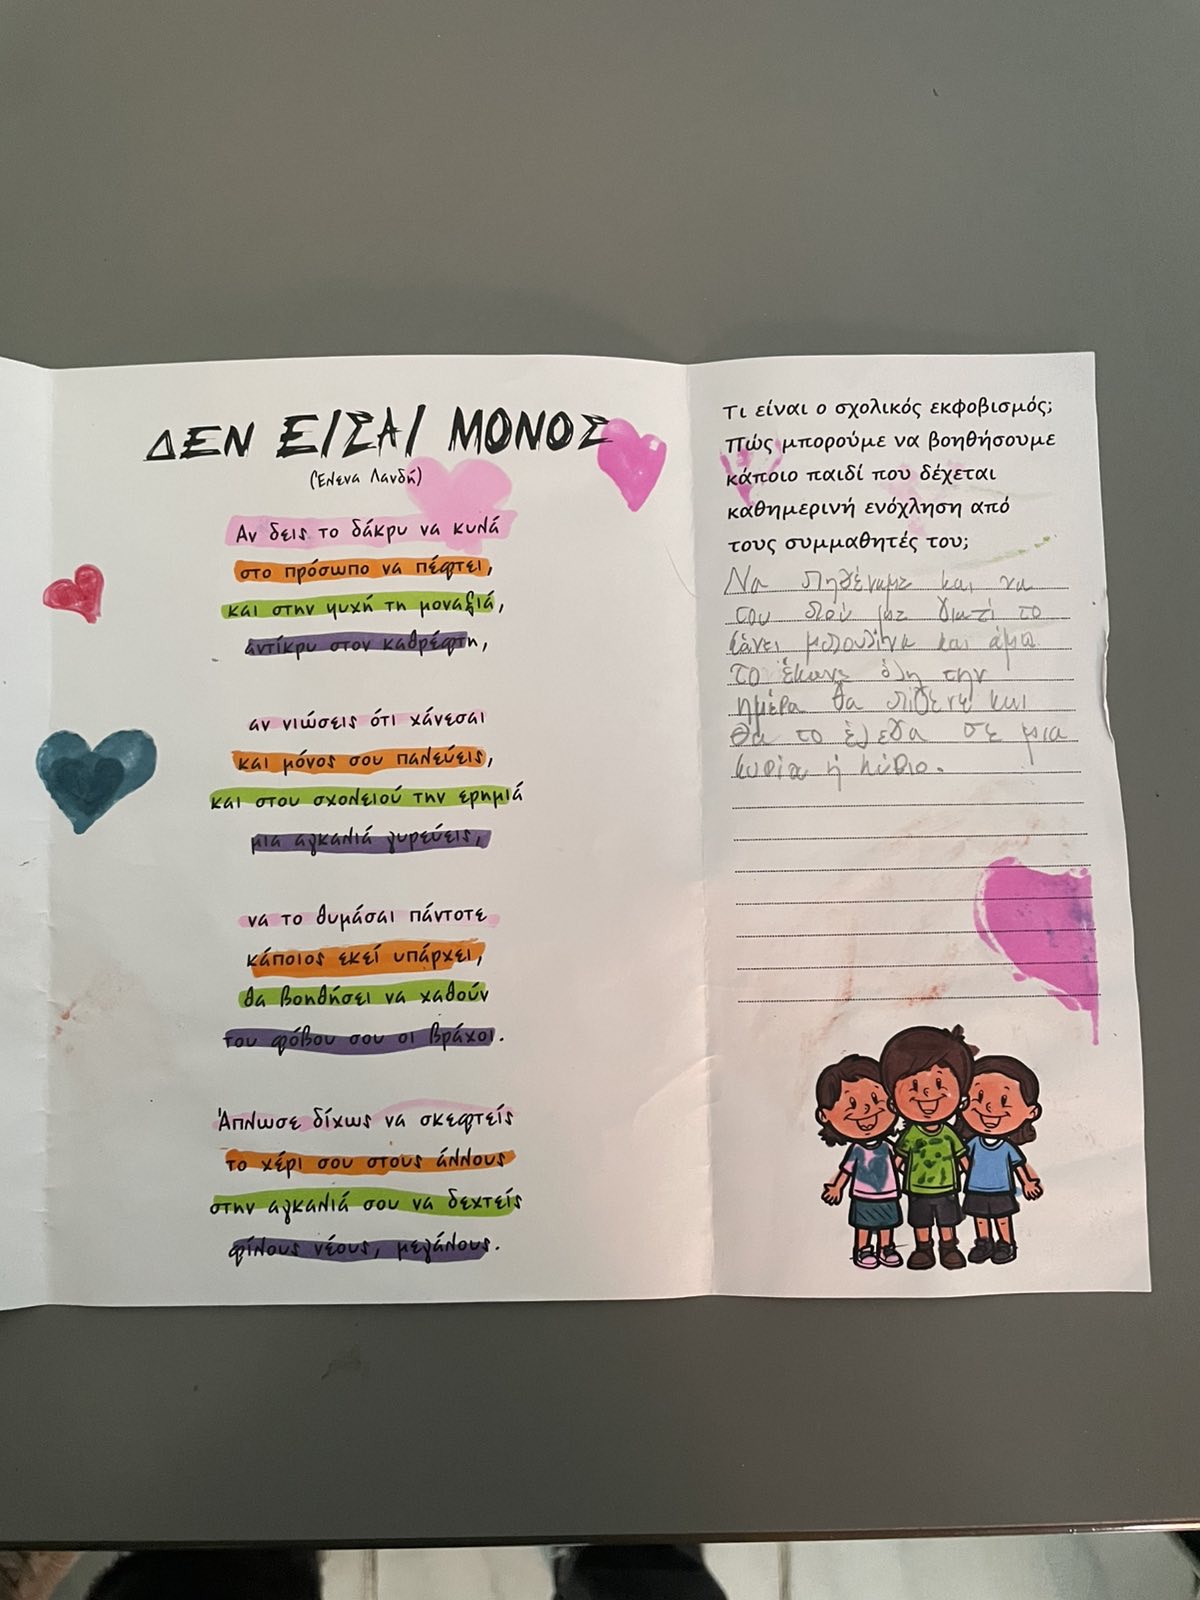 ΔΕΝ ΕΙΣΑΙ ΜΟΝΟΣ
(Έλενα Λανδή)
Αν δεις το δάκρυ να κυλά
στο πρόσωπο να πέφτει,
και στην ψυχή τη μοναξιά,
αντίκρυ στον καθρέφτη,
αν νιώσεις ότι χάνεσαι
και μόνος σου παλεύεις,
και στου σχολειού την ερημιά
μια αγκαλιά γυρεύεις,
να το θυμάσαι πάντοτε
κάποιος εκεί υπάρχει,
θα βοηθήσει να χαθούν
του φόβου σου οι βράχοι.
Άπλωσε δίχως να σκεφτείς
το χέρι σου στους άλλους
στην αγκαλιά σου να δεχτείς
φίλους νέους, μεγάλους.
Τι είναι ο σχολικός εκφοβισμός;
Πώς μπορούμε να βοηθήσουμε
κάποιο παιδί που δέχεται
καθημερινή ενόχληση από
τους συμμαθητές του;
Να πηθέναμε και να
του πού με γιατί το
κάνει μπουλινκ και άμα
το έκανε όλη την
ημέρα θα πιθενα και
θα το έλεγα σε μια
κυρία ή κύριο.